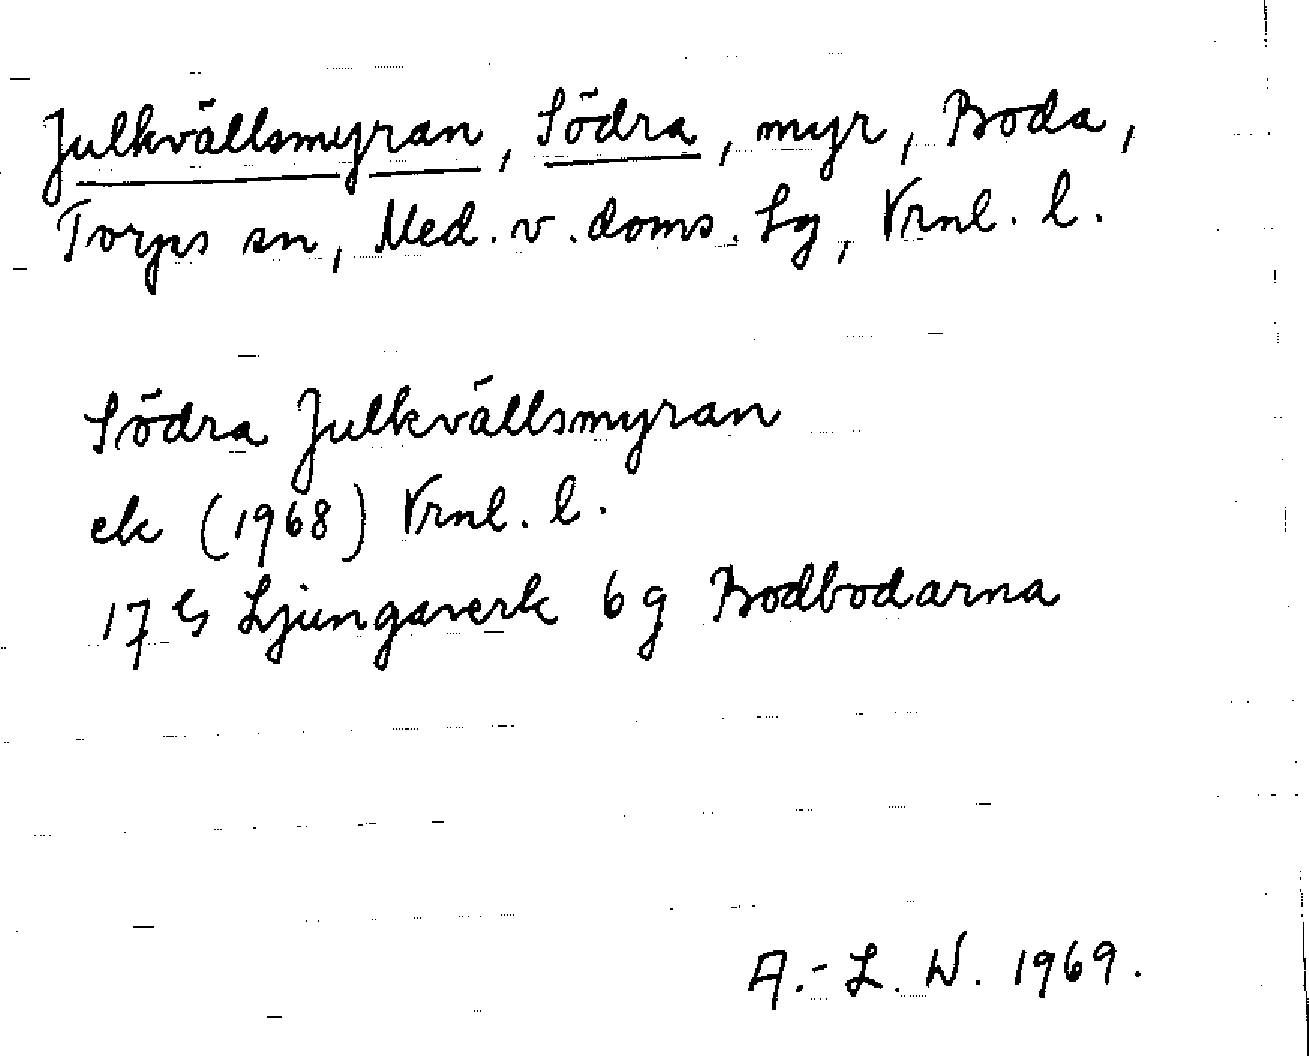 Julkvällsmyran, Södra, myr, Boda,
Torps sn, Med. v. doms. Lg, Vrnl. l.
Södra Julkvällsmyran
ek (1968) Vrnl. l.
17 G Ljungaverk 6 g Bodbodarna
A.-L. W. 1969.